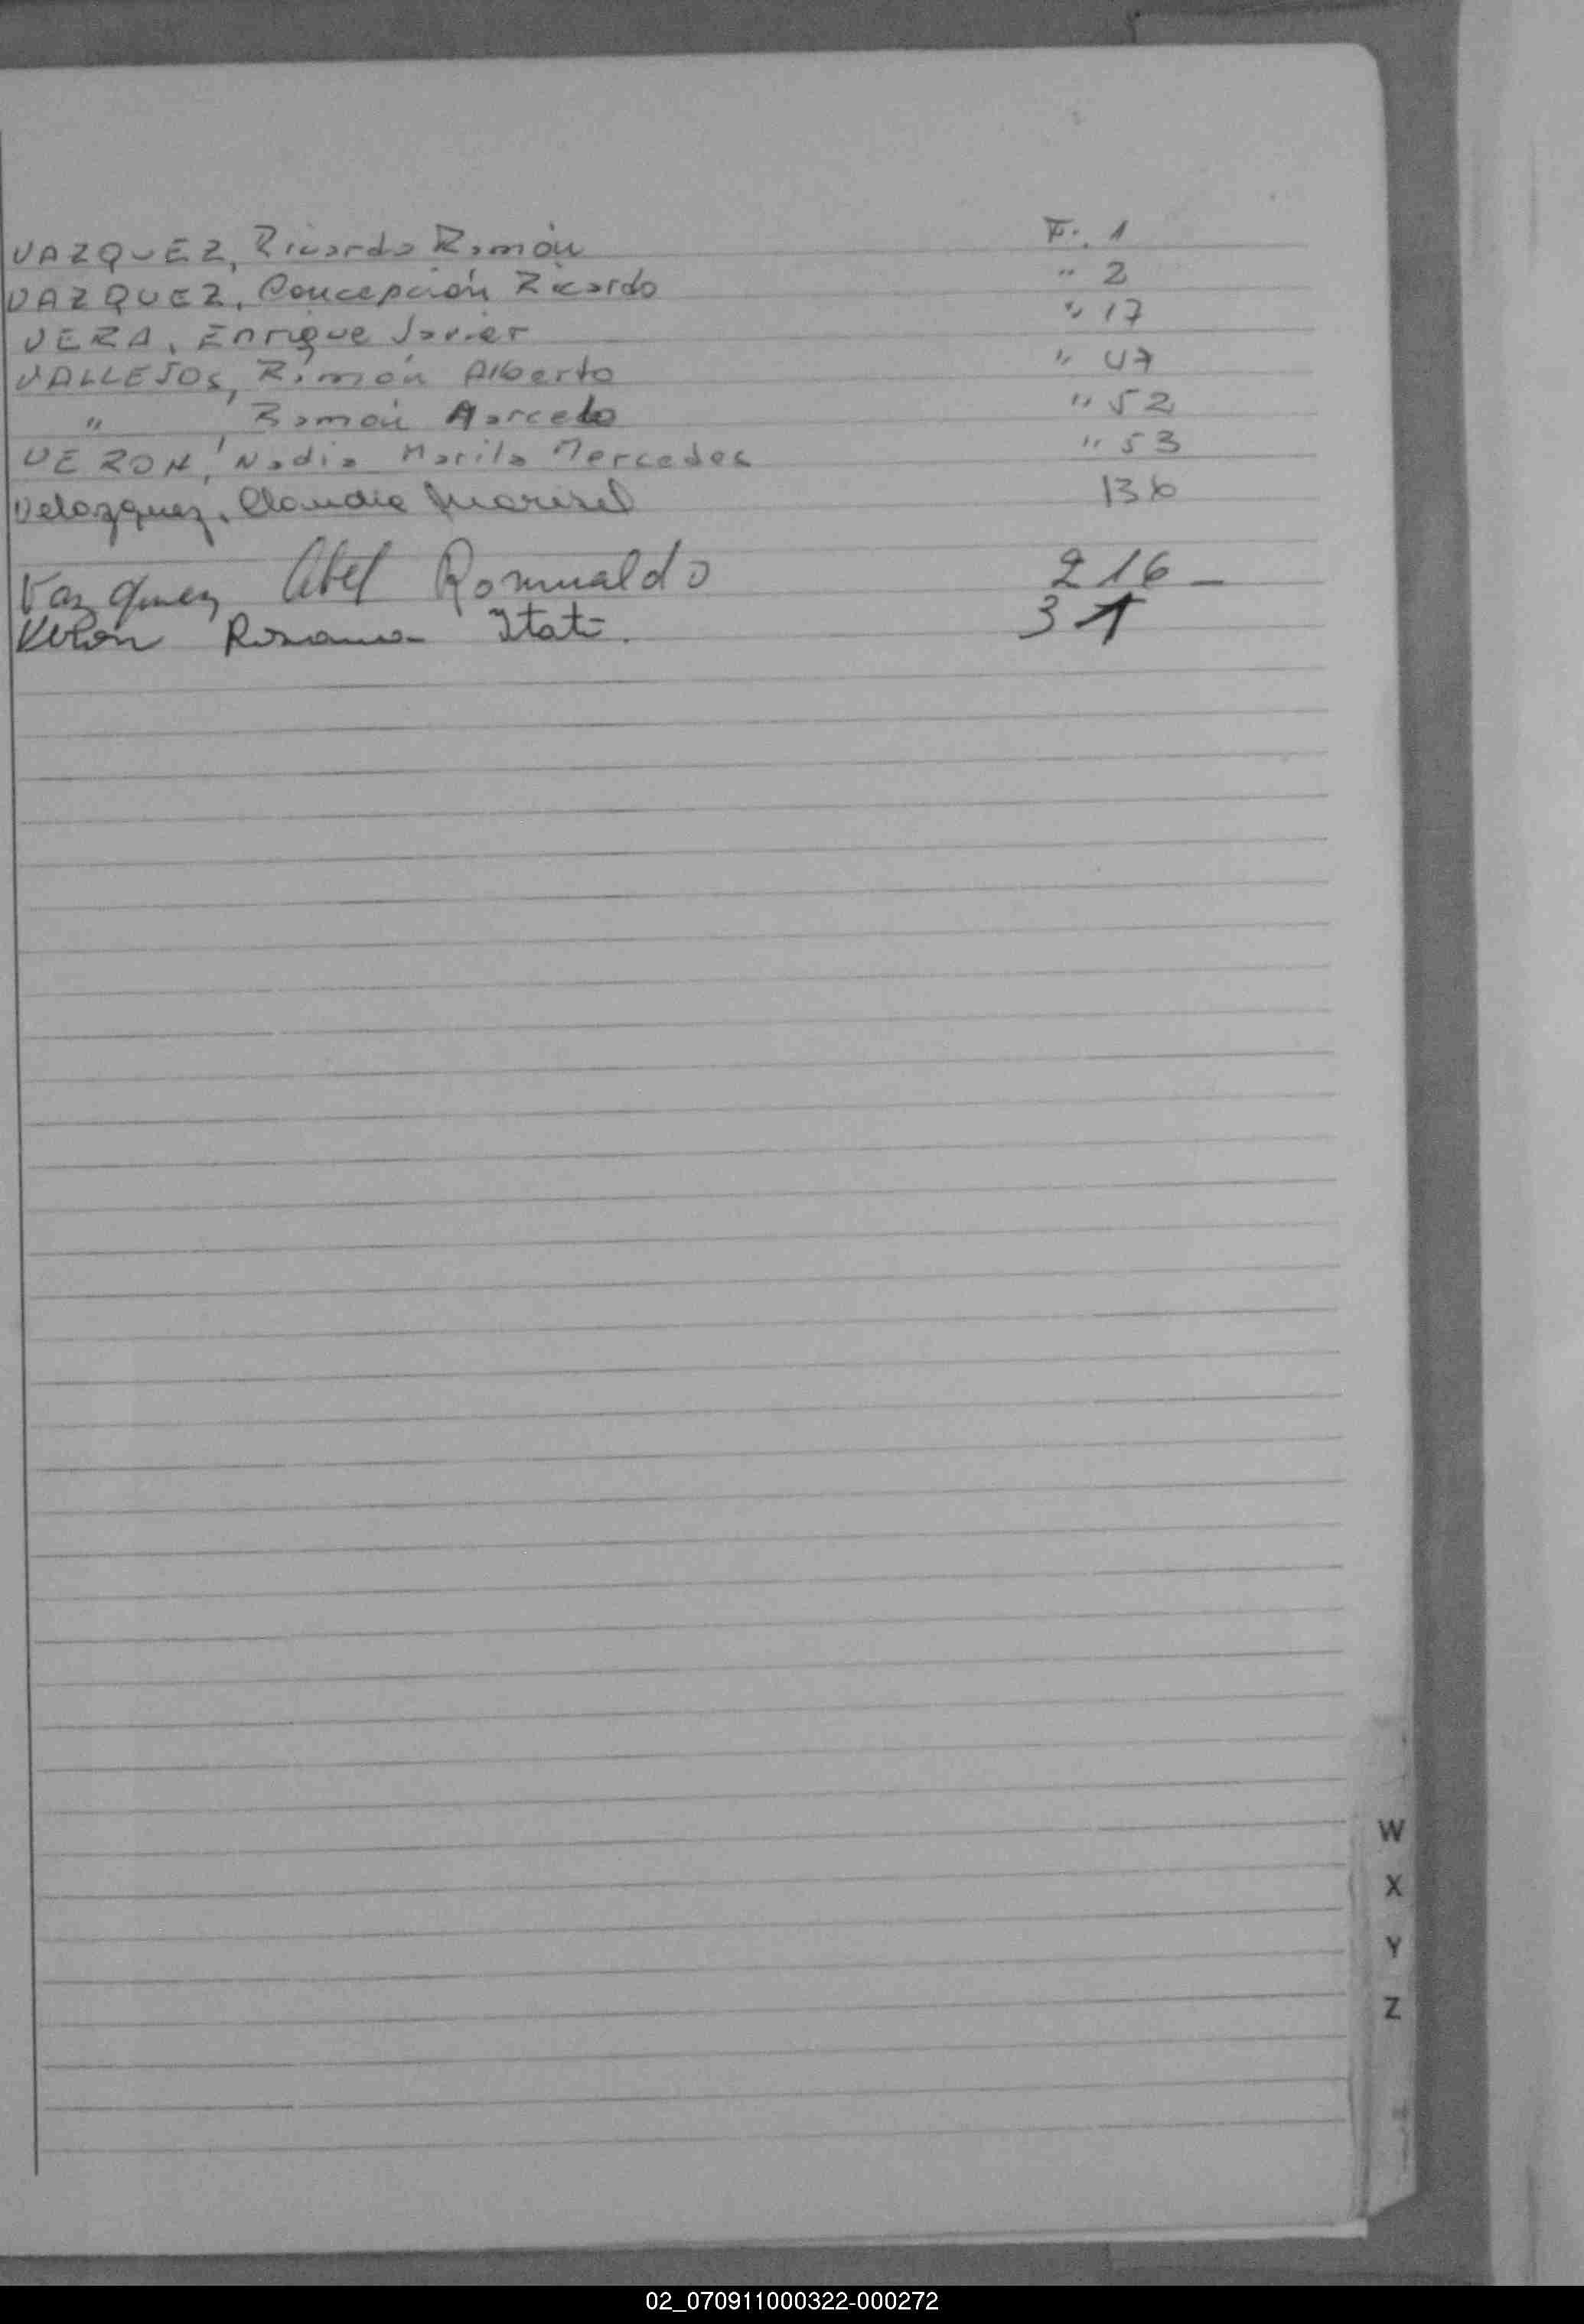 VAZQUEZ, Ricardo Ramón F. 1
VAZQUEZ, Concepción Ricardo " 2
VERA, Enrique Javier " 17
VALLEJOS, Rimón Alberto " 47
" Ramón Marcelo " 52
VERON, Nadia Marila Mercedes " 53
Velazquez, Claudia Marisel 136
Vazquez Abel Romualdo 216 _
Verón Rosana Itati. 31
W
X
Y
Z
02_070911000322-000272